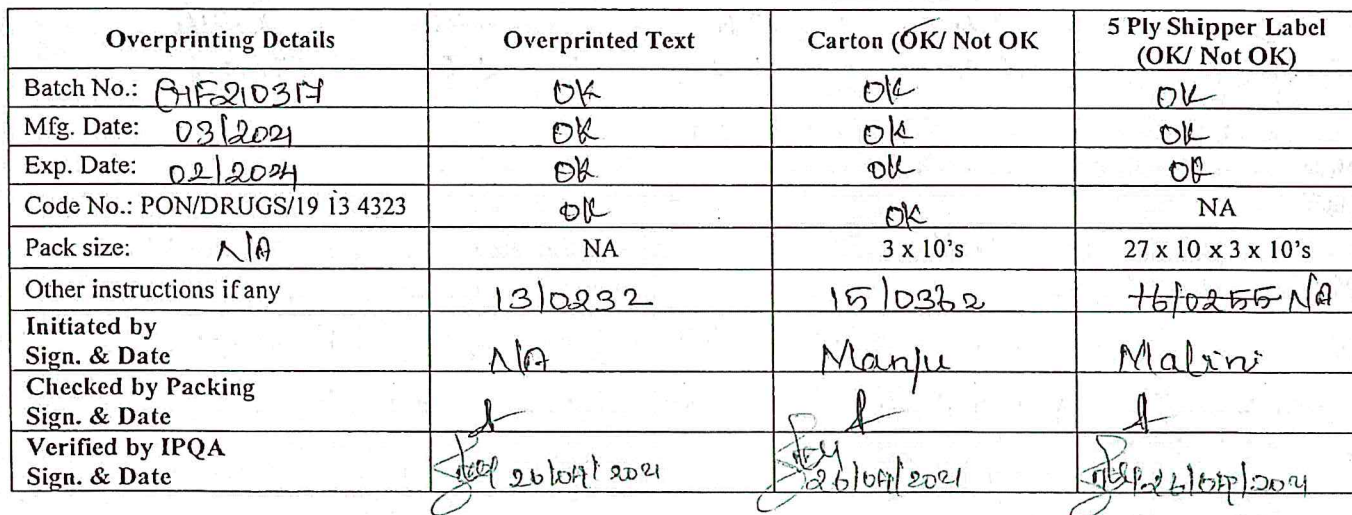 Overprinting Details Overprinted Text Carton (OK/ Not OK 5 Ply Shipper Label
(OK/ Not OK)
Batch No.: OK OK OK
Mfg. Date: 03/2021 OK OK OK
Exp. Date: 02/2024 OK OK OK
Code No.: PON/DRUGS/19 13 4323 OK OK NA
Pack size: N/A NA 3 x 10's 27 x 10 x 3 x 10's
Other instructions if any 13/0232 15/0362 16/0255 NA
Initiated by
Sign. & Date N/A Manju Malini
Checked by Packing
Sign. & Date
Verified by IPQA
Sign. & Date 26/04/2021 26/04/2021 26/04/2021